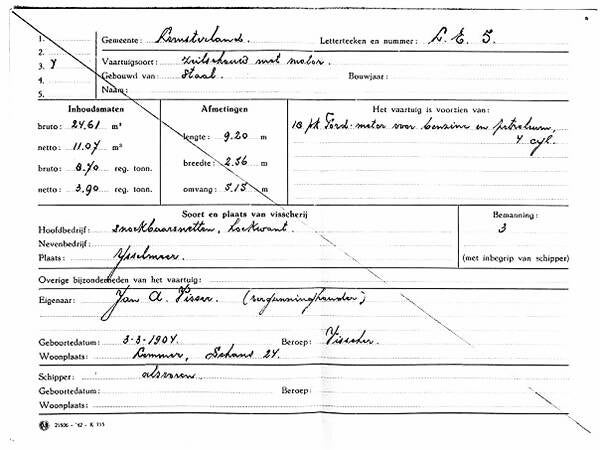 1.
Gemeente: Lemsterland. Letterteeken en nummer: L. E. 5.
2.
3. Y Vaartuigsoort: zeilschouw met motor.
4. Gebouwd van: Staal. Bouwjaar:
5. Naam:
Inhoudsmaten Afmetingen Het vaartuig is voorzien van:
bruto: 24,61 m³ lengte: 9.20 m 18 pk Ford-motor voor benzine en petroleum,
4 cyl.
netto: 11.07 m³
bruto: 8.70 reg. tonn. breedte: 2.56 m
netto: 3.90 reg. tonn. omvang: 5.15 m
Soort en plaats van visscherij Bemanning:
Hoofdbedrijf: snoekbaarsnetten, hoekwant. 3
Nevenbedrijf:
Plaats: Ysselmeer. (met inbegrip van schipper)
Overige bijzonderheden van het vaartuig:
Eigenaar: Jan A. Visser. (vergunninghouder)
Geboortedatum: 3-3-1904. Beroep: Visscher.
Woonplaats: Lemmer, Schans 24.
Schipper: alsvoren.
Geboortedatum: Beroep:
Woonplaats:
21506 - '42 - K 115